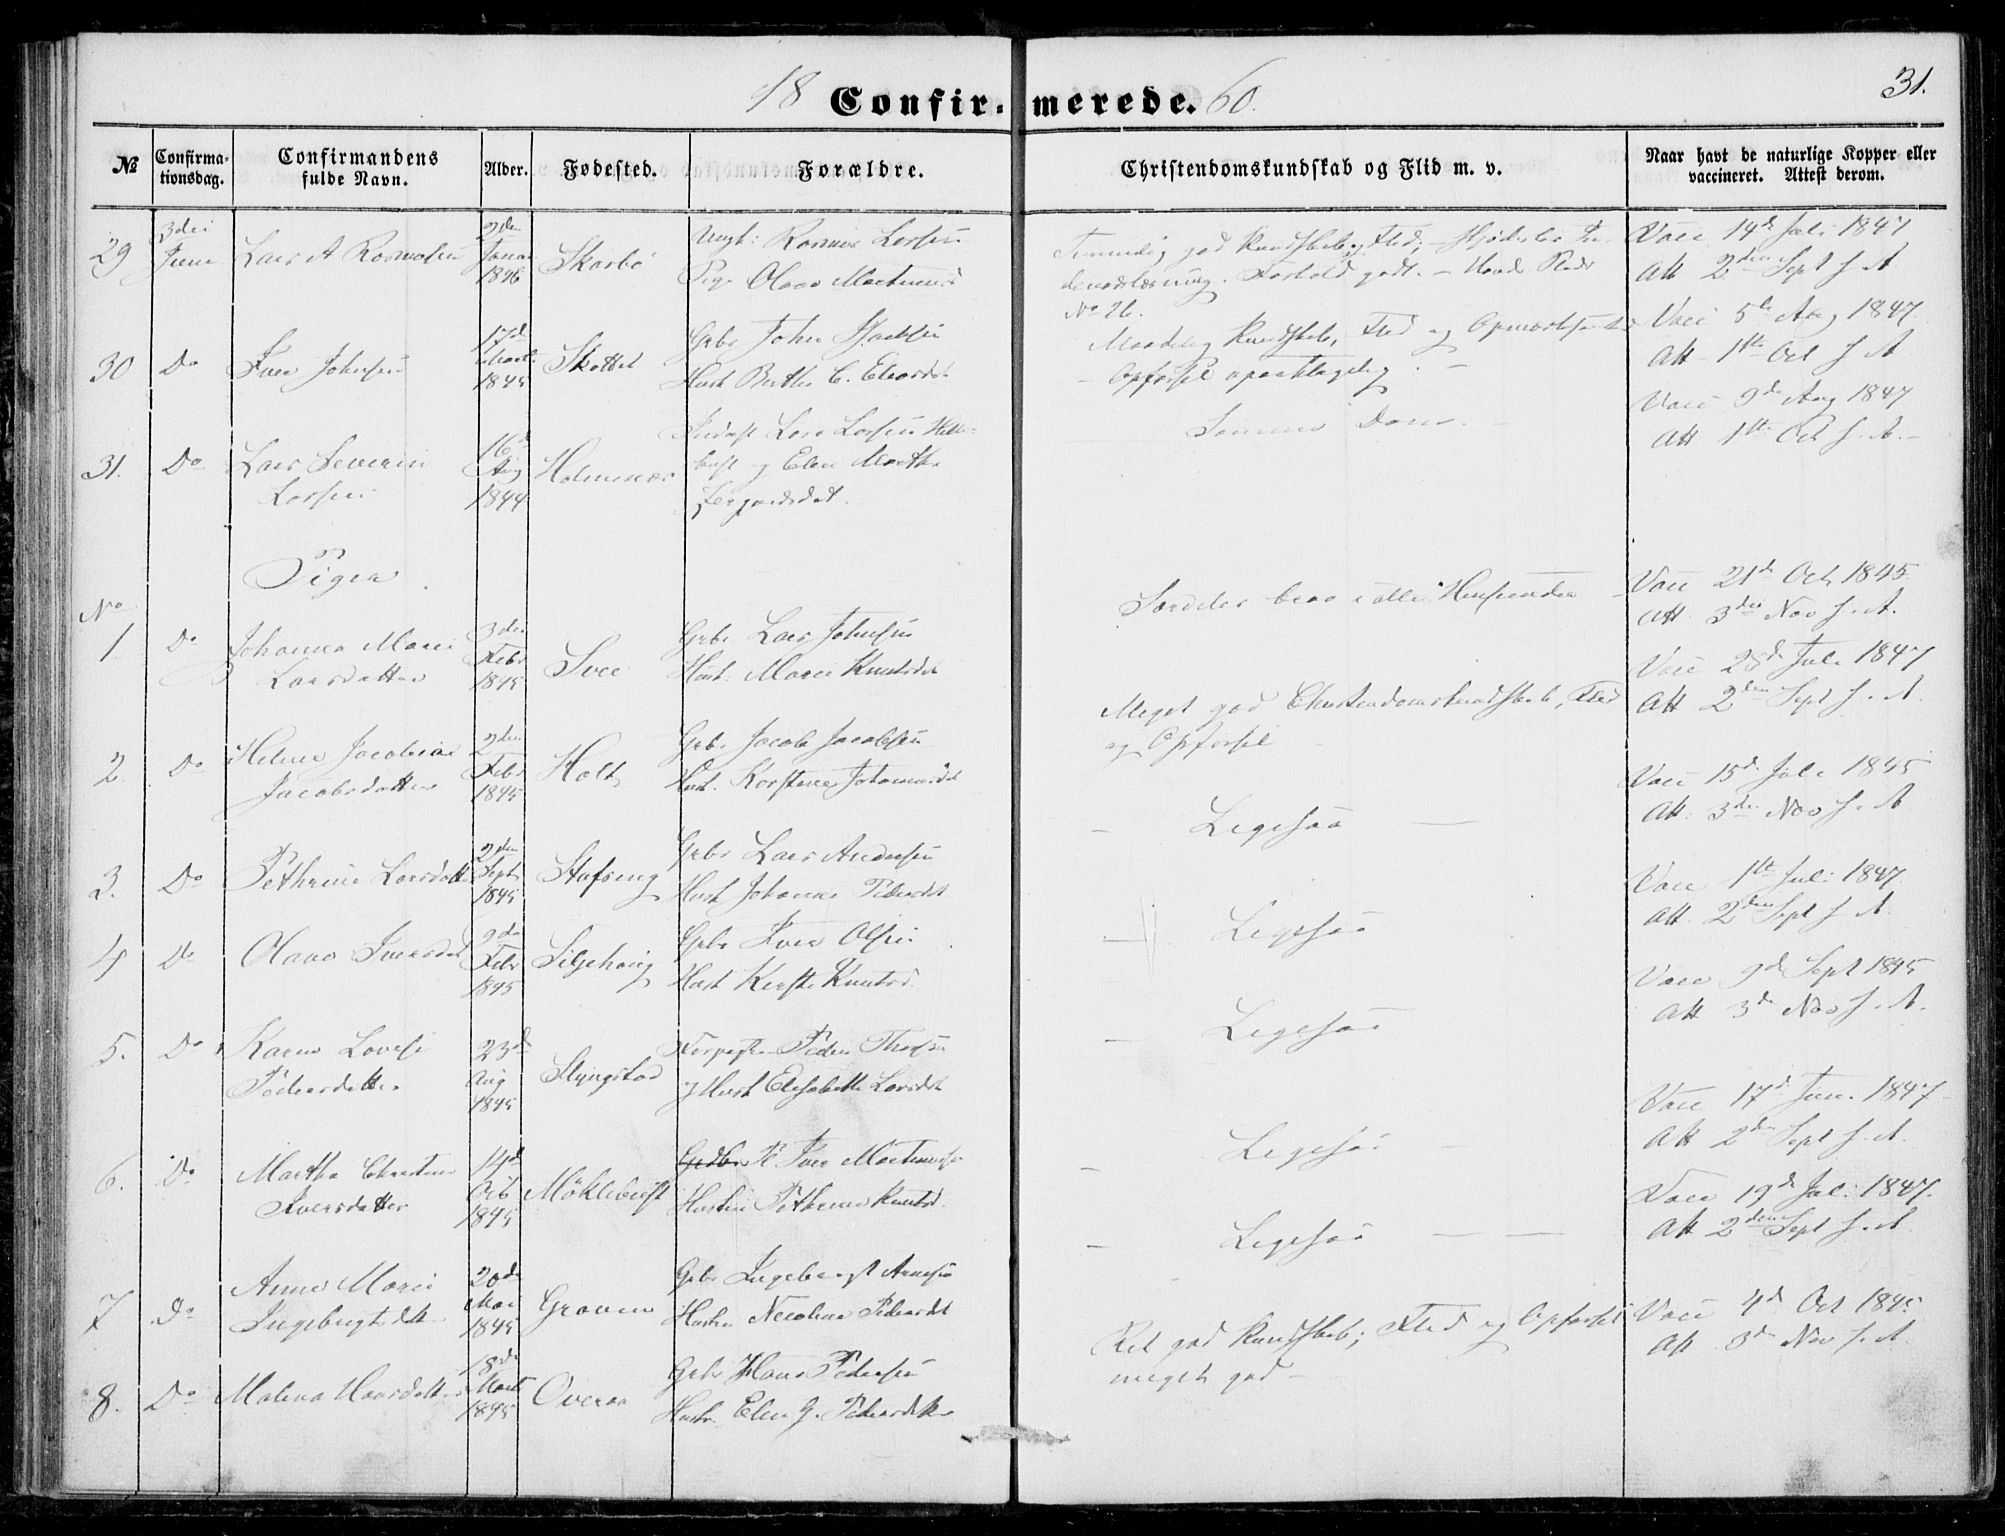 18 Confir-merede. 60.
31.
No
Confirma-
tionsdag.
Confirmandens
fulde Navn.
Alder.
Fødested.
Forældre.
Christendomskundskab og Flid m. v.
Naar havt de naturlige Kopper eller
vaccineret. Attest derom.
29
3die
Juni
Lars A Rasmusen
2den
Januar
1846
Skarbø
Ungk: Rasmus Larsen
Pige Olava Martinusd
god Kundskab, Flid
Forhold godt.
No 26.
Vacc 14d Juli 1847
Att 2den Sept s. A
30
Do
Iver Johnsen
17d
Marts
1845
Skottet
Grbr John
Hust Berthe C. Elevsdt
Maadelig Kundskab, Flid og
- Opførsel upaaklagelig. -
Vacc 5te Aug 1847
Att 1ste Oct s A
31.
Do
Lars Severin
Larsen
16d
Aug
1844
Holmenæs
Inderst Lars Larsen
og Elen Marthe
Samme Dom. -
Vacc 9de Aug 1847
Att 1ste Oct s. A. -
Piger
No
1
Do
Johanna Marie
Larsdatter
3die
Febr
1845
Svee
Grbr Lars Johnsen
Hust: Marie Knutsdt
Særdeles brav i alle Henseender
Vacc 21de Oct 1845
Att. 3die Nov s. A.
2
Do
Helene Jacobine
Jacobsdatter
2den
Febr
1845
Holt
Grbr Jacob Jacobsen
Hust. Karstene Johannesdt
Meget god Christendomskundskab, Flid
og Opførsel
Vacc 28de Juli 1847
Att 2den Sept s. A.
3.
Do
Pethrine Larsdatter
2den
Sept
1845
Stafseng
Grbr Lars Andersen
Hust Johanne Pedersdt
- Ligesaa -
Vacc 15d Juli 1845
Att. 3die Nov s. A
4
Do
Olava Iversdat
9de
Febr
1845
Silgehaug
Grbr Iver Olsen
Hust Kirste Knutsd.
- Ligesaa
Vacc 1ste Juli 1847
Att. 2den Sept s A.
5.
Do
Karen Lovise
Pedersdatter
23d
Aug
1845
Slyngstad
Peder
og Hust Elisabeth Larsdt
- Ligesaa
Vacc 9de Sept 1845
Att 3d Nov s. A.
6.
Do
Martha Christine
Iversdatter
14d
Oct
1845
Møklebust
Iver Martinusen
Hustru Pethrine Knutsd.
- Ligesaa -
Vacc 17d Juni 1847
Att 2den Sept s. A.
7
Do
Anne Marie
Ingebrigtsdt
20de
Mai
1845
Graven
Grbr Ingebrigt Arnesen
Hustru Nicoline Pedersdt
- Ligesaa -
Vacc 19de Juli 1847.
Att 2den Sept s. A
8.
Do
Malena Hansdatter
18de
Marts
1845
Overaa
Grbr Hans Pedersen
Hustr. Elen G. Pedersdtr
Ret god Kundskab; Flid og Opførsel
meget god -
Vacc 4d Oct 1845
Att 3d Nov s. A.